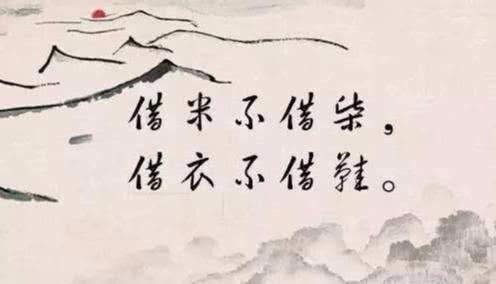 借米不借柴，
借衣不借鞋。